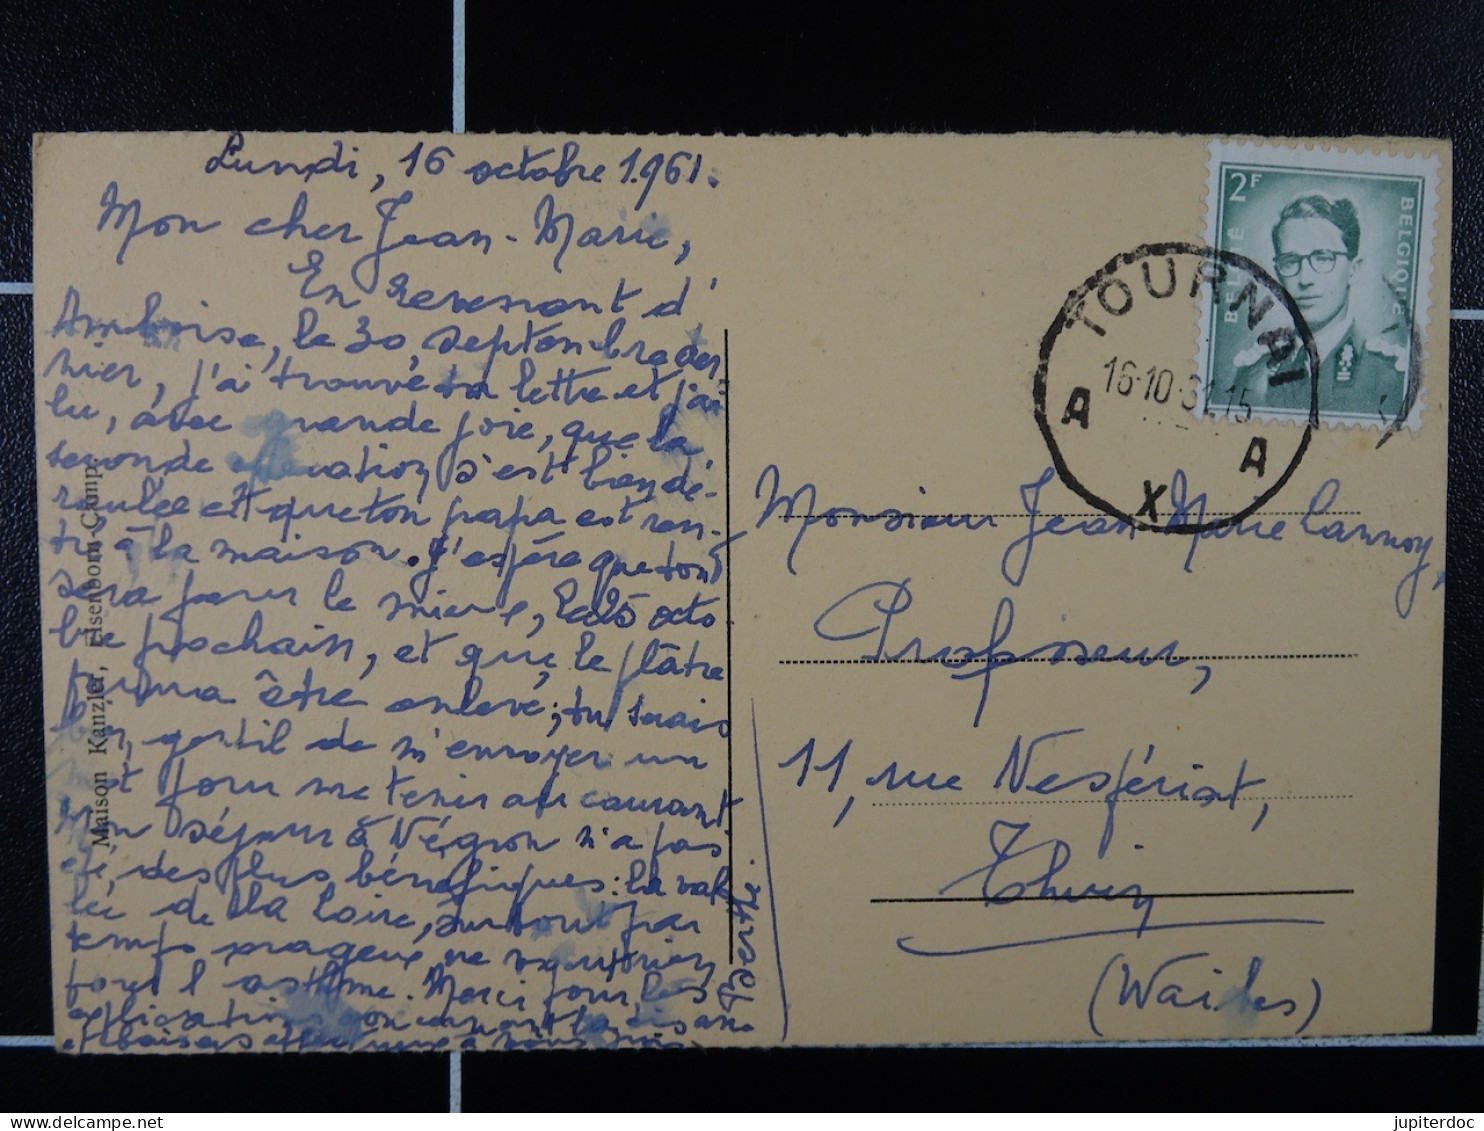 Lundi, 16 octobre 1961.
Mon cher Jean-Marie,
En revenant d'
Amboise, le 30 septembre der
nier, j'ai trouvé ta lettre et j'ai
lu, avec grande joie, que la
seconde opération s'est bien dé-
roulée et que ton papa est ren-
tré à la maison. J'espère que tout
sera pour le mieux, le 25 octo
bre prochain, et que le plâtre
pourra être enlevé; tu serais
bien gentil de m'envoyer un
mot pour me tenir au courant.
Mon séjour à Négron n'a pas
été des plus bénéfiques: la val
lée de la Loire, surtout par
temps orageux, ne vaut rien
pour l'asthme. Merci pour les
explications concernant
et baisers affectueux à vous trois
Maison Kanzler, Elsenborn-Camp.
TOURNAI
16-10-61.15
A A
X
2F
BELGIË BELGIQUE
Monsieur Jean Marie Lannoy,
Professeur,
11, rue Nespériat,
Thuin
jupiterdoc